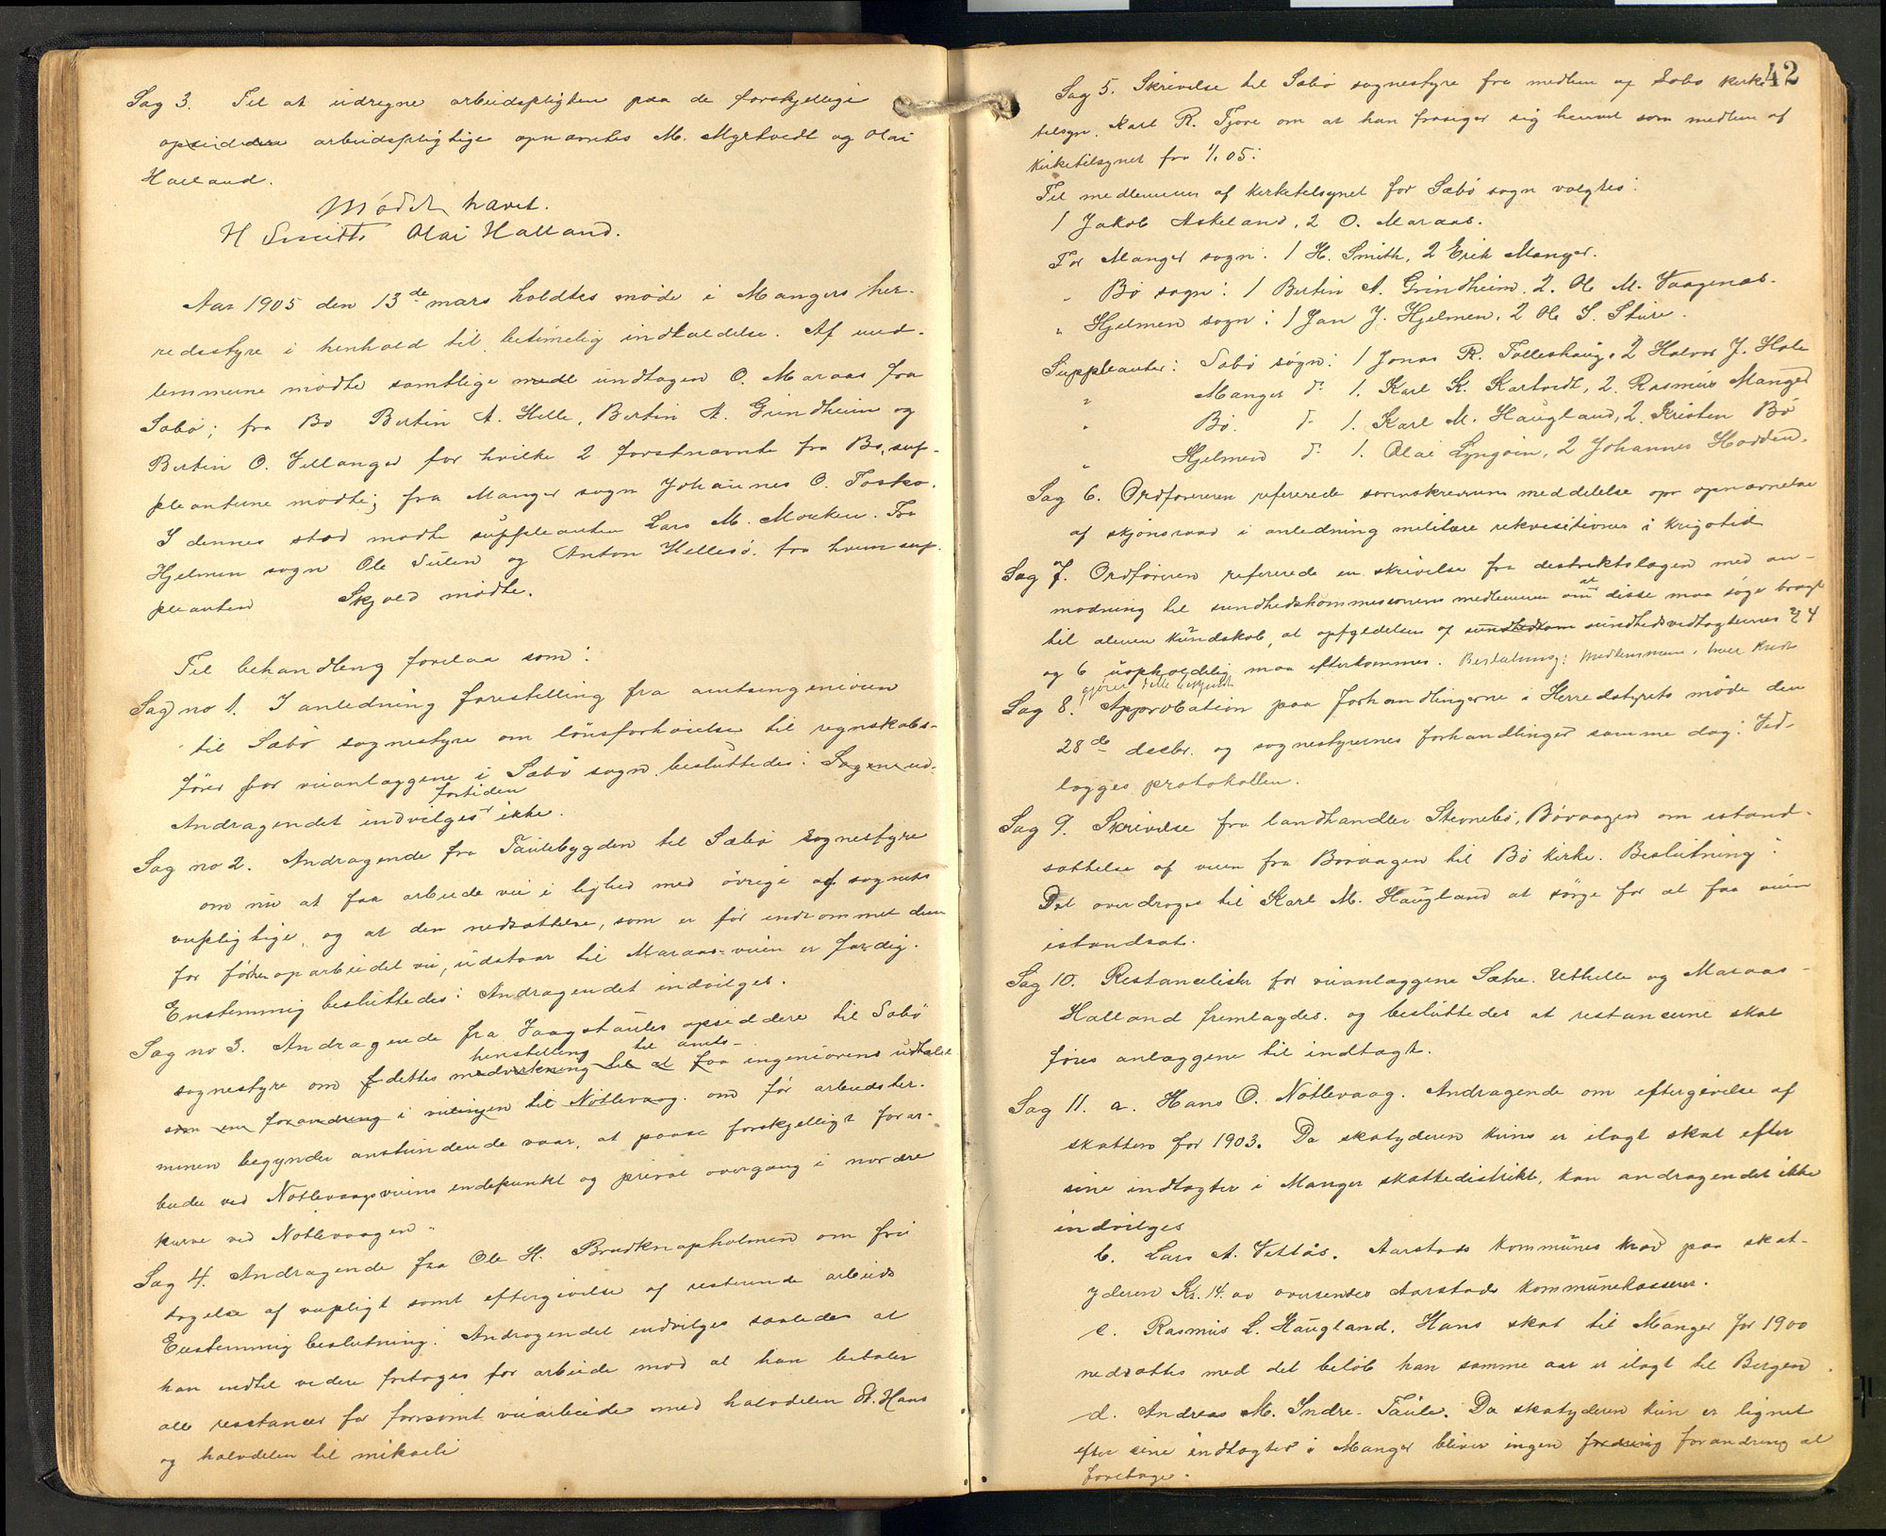 Sag 3. Til at udregne arbeidspligten paa de forskjellige
opsiddere arbeidspligtige opnævntes M. Myrtvedt og Olai
Halland.
Mødet hævet.
H Smith Olai Halland.
Aar 1905 den 13de mars holdtes møde i Mangers her-
redsstyre i henhold til betimelig indkaldelse. Af med-
lemmerne mødte samtlige med undtagen O. Maraas fra
Sæbø; fra Bø Bertin A. Helle, Bertin A. Grindheim og
Bertin O. Vellanger for hvilke 2 førstnævnte fra Bø, sup-
pleanterne mødte; fra Manger sogn Johannes O. Toska.
I dennes sted mødte suppleanten Lars M. Monken. Fra
Hjelmen sogn Ole Tulen og Anton Hellesø. fra hvem sup-
pleanten Skjold mødte.
Til behandling forelaa som:
Sag no 1. I anledning forestilling fra amtsingeniøren
til Sæbø sognestyre om lønsforhøielse til regnskabs-
fører for veianlæggene i Sæbø sogn besluttedes: Sagen ud-
fortiden
Andragendet indvilges ikke.
Sag no 2. Andragende fra Taulebygden til Sæbø sognestyre
om nu at faa arbeide vei i lighed med øvrige af sognets
veipligtige, og at den nedsættelse, som er før indrømmet dem
for før oparbeidet vei, udstaar til Maraas-veien er færdig.
Enstemmig besluttedes: Andragendet indvilges.
Sag no 3. Andragende fra Vaagstaules opsiddere til Sæbø
henstilling til amts-
sognestyre om dettes medvirkning til at faa ingeniørens udtalelse
som en forandring i veilinjen til Nøtlevaag. om før arbeidster-
minen begynder anstundende vaar, at paase forskjellige forar-
beider ved Nøtlevaagsveiens endepunkt og privat overgang i nordre
kurve ved Nøtlevaagen.
Sag 4. Andragende fra Ole H. Bruknapholmen om fri-
tagelse af veipligt samt eftergivelse af resterende arbeids
Enstemmig beslutning: Andragendet indvilges saaledes at
han indtil videre fritages for arbeide mod at han betaler
alle restancer for forsømt veiarbeide med halvdelen St. Hans
og halvdelen til mikaeli
42
Sag 5. Skrivelse til Sæbø sognestyre fra medlem af Sæbø kirke-
tilsyn. Karl R. Fjore om at han frasiger sig hvervet som medlem af
kirketilsynet fra 1/1 05:
Til medlemmer af kirketilsynet for Sæbø sogn valgtes:
1 Jakob Askeland, 2 O. Maraas.
For Manger sogn: 1 H. Smith, 2 Erik Manger.
" Bø sogn: 1 Bertin A. Grindheim. 2. Ole M. Vaagenæs.
" Hjelmen sogn: 1 Jan J. Hjelmen, 2 Ole S. Sture.
Suppleanter: Sæbø sogn: 1 Jonas R. Tolleshaug. 2 Halvor J. Hole
" Manger do 1. Karl K. Kartveit, 2. Rasmus Manger
" Bø. do 1. Karl M. Haugland, 2. Kristen Bø
" Hjelmen do 1. Olai Lyngøin, 2 Johannes Hodden.
Sag 6. Ordføreren refererede sorenskrivrens meddelelse om opnævnelse
af skjønsraad i anledning militære rekvisitioner i krigstid
Sag 7. Ordføreren refererede en skrivelse fra destriktslægen med an-
modning til sundhedskommissionens medlemmer om at disse maa søge bragt
til almen kundskab, at opfyldelsen af sundhedsom sundhedsvedtægternes § 4
og 6 uopholdelig maa efterkommes. Beslutning: Medlemmerne, hver kreds
gjører dette bekjendt
Sag 8. Approbation paa forhandlingerne i Herredstyrets møde den
28de decbr. og sognestyrernes forhandlinger samme dag: Ved-
lægges protokollen.
Sag 9. Skrivelse fra landhandler Stennebø, Bøvaagen om istand-
sættelse af veien fra Bøvaagen til Bø kirke. Beslutning:
Det overdrages til Karl M. Haugland at sørge for at faa veien
istandsat.
Sag 10. Restancelister for veianlæggene Sætre-Uthelle og Maraas-
Halland fremlagdes. og besluttedes at restancerne skal
føres anlæggene til indtægt.
Sag 11. a. Hans O. Nøtlevaag. Andragende om eftergivelse af
skatten for 1903. Da skatyderen kuns er ilagt skat efter
sine indtægter i Manger skattedistrikt, kan andragendet ikke
indvilges
b. Lars A. Vetlås. Aarstads kommunes krav paa skat-
yderen Kr. 14. oversendes Aarstads kommunekasserer.
c. Rasmus L. Haugland. Hans skat til Manger for 1900
nedsættes med det beløb han samme aar er ilagt til Bergen.
d. Andreas M. Indre-Taule. Da skatyderen kun er lignet
efter sine indtægter i Manger bliver ingen fordring forandring at
foretage.